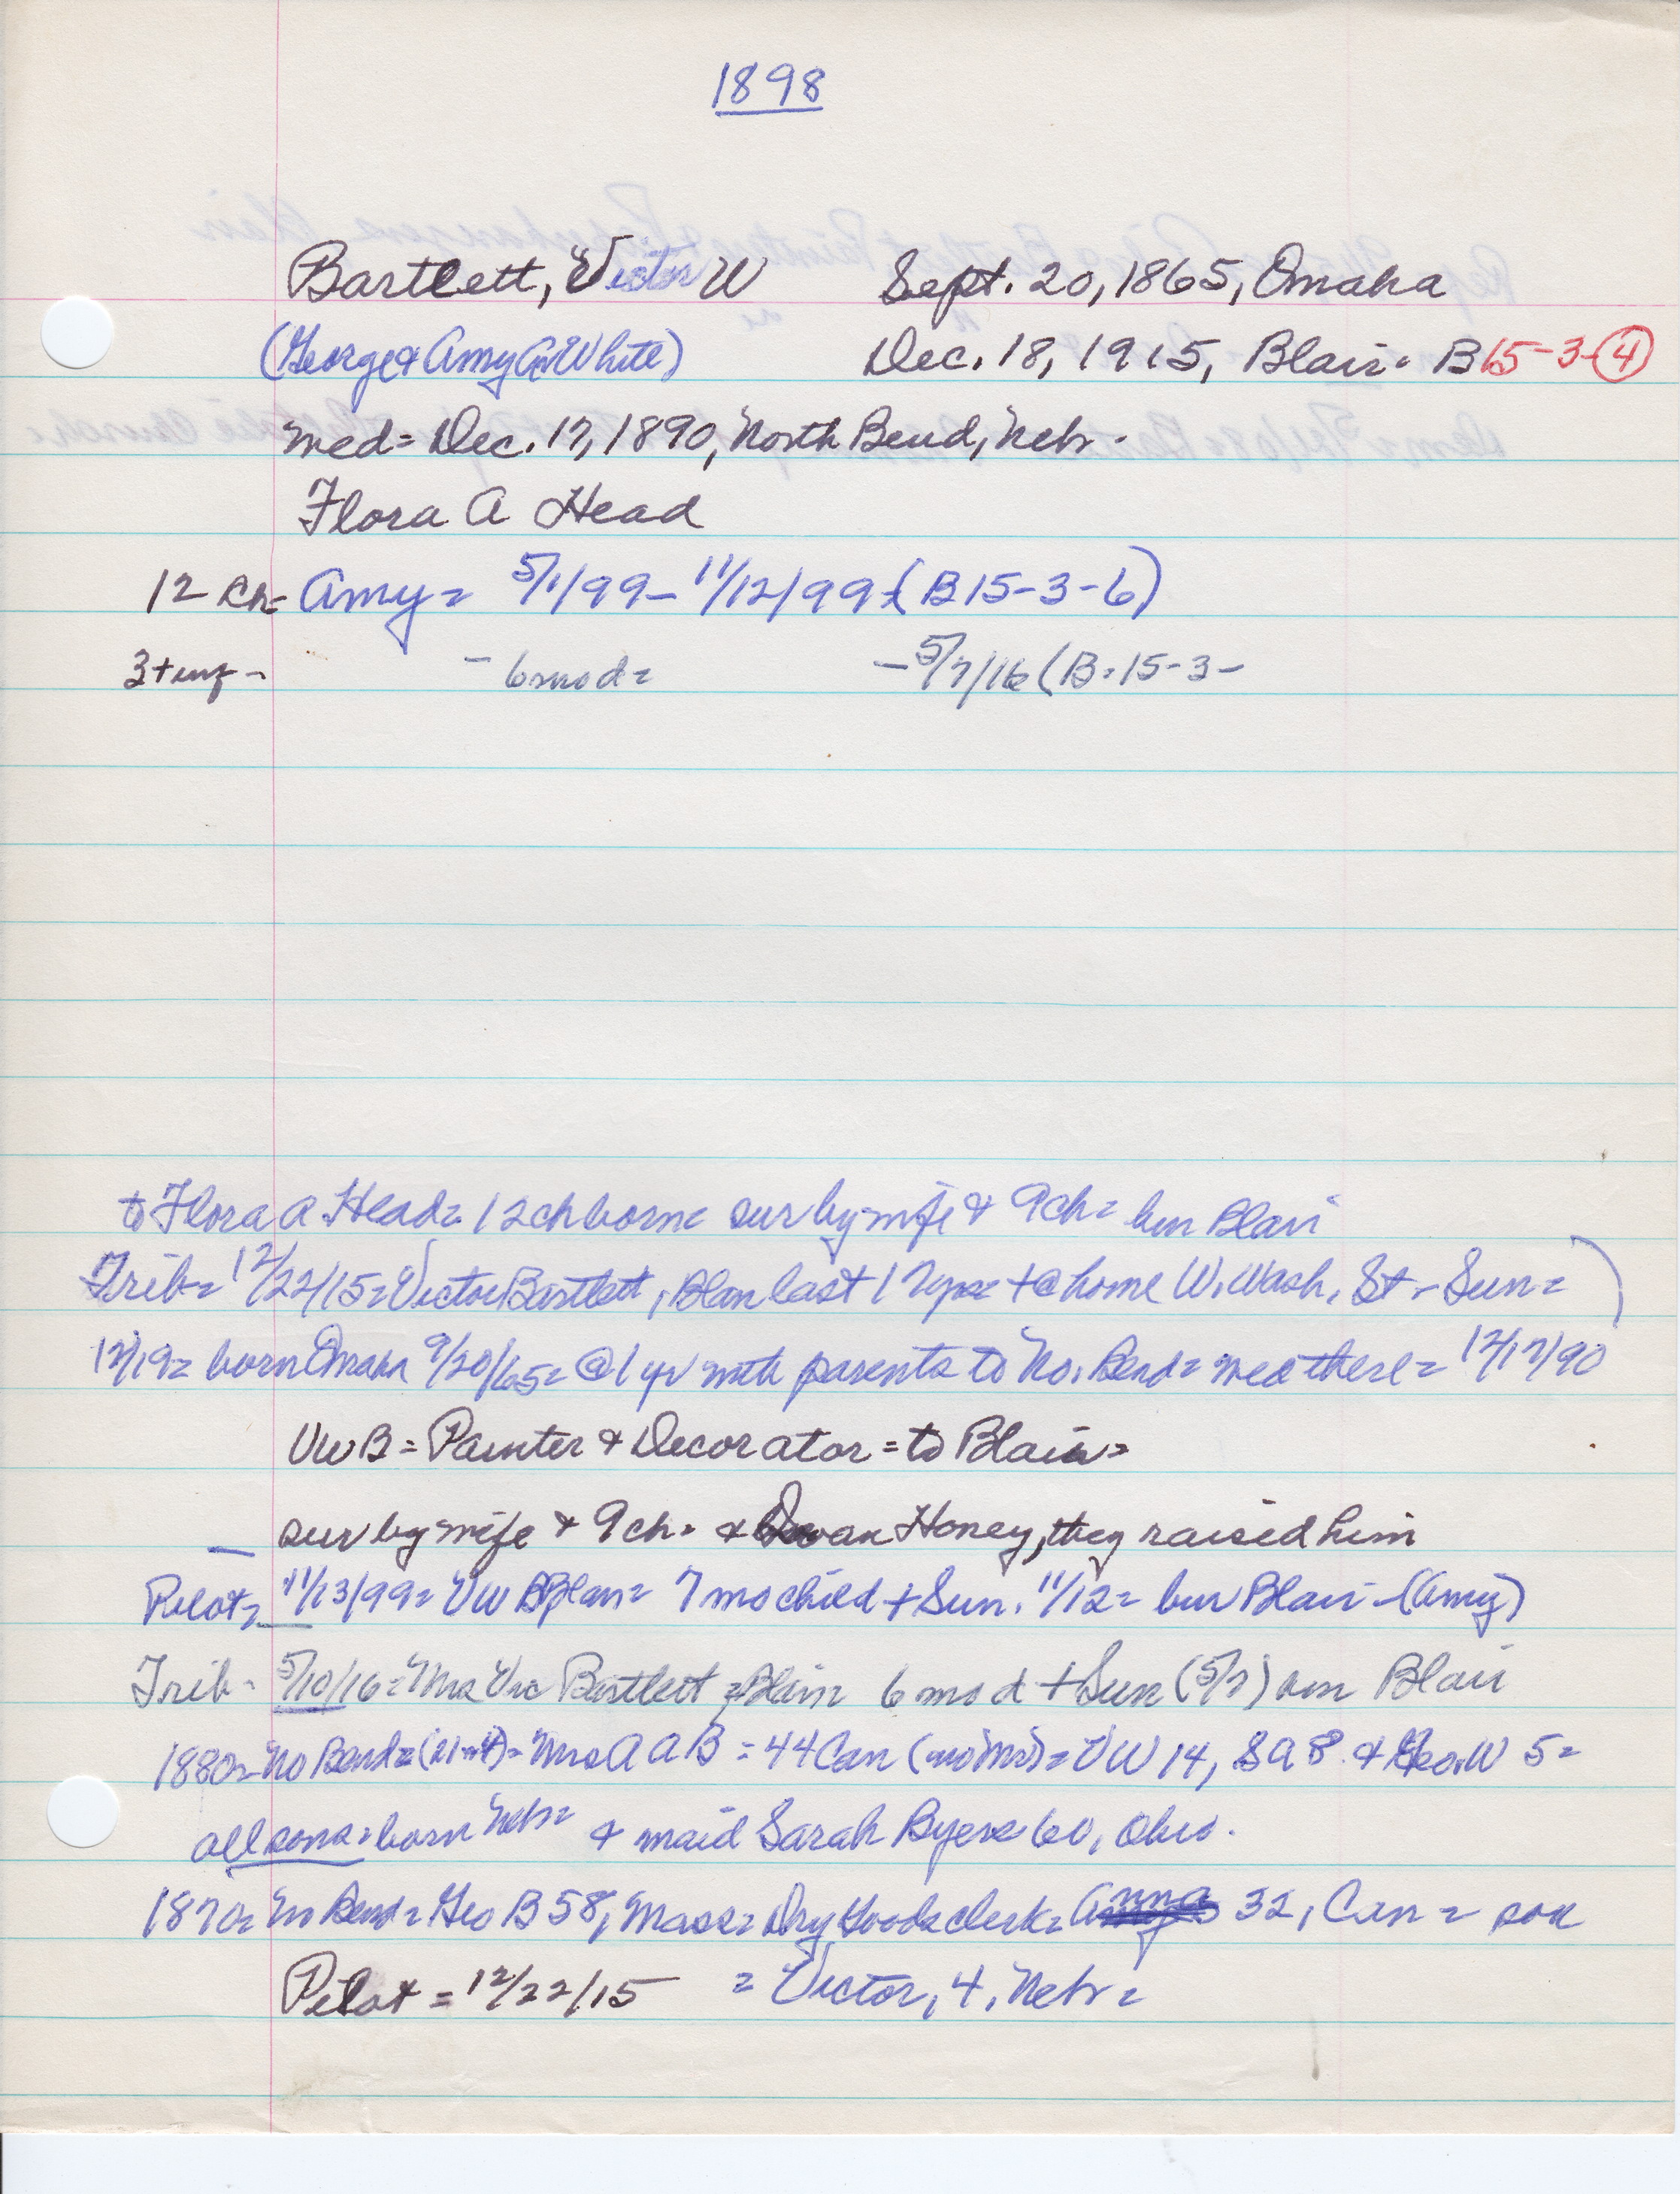 1898
Bartlett, Victor W Sept. 20, 1865, Omaha
(George & Amy A White) Dec. 18, 1915, Blair. B15-3-4
med = Dec. 17, 1890, North Bend, Nebr.
Flora A Head
12 ch- Amy = 5/1/99 - 11/12/99 (B15-3-6)
3 + inf - - 6 mo d = - 5/7/16 (B.15-3-
to Flora A Head = 12 ch born = sur by wife & 9 ch = bur Blair
Trib = 12/22/15 = Victor Bartlett, Blair last 17 yrs = + @ home W. Wash. St - Sun =
12/19 = born Omaha 9/20/65 = @ 1 yr with parents to No. Bend = med there = 12/17/90
VWB = Painter & Decorator = to Blair =
sur by wife & 9 ch = & Honey, they raised him
Pilot = 11/13/99 = VW B Blair = 7 mo child + Sun. 11/12 = bur Blair - (Amy)
Trib - 5/10/16 = Mrs Vic Bartlett, Blair 6 mo d + Sun (5/7) Blair
1880 = No Bend = = Mrs A A B = 44 Can = VW 14, S A 8. & Geo. W 5 =
all sons = born Nebr = & maid Sarah Byers 60, Ohio.
1870 = No Bend = Geo B 58, Mass = Dry Goods clerk = 32, Can = son
Pilot = 12/22/15 = Victor, 4, Nebr =